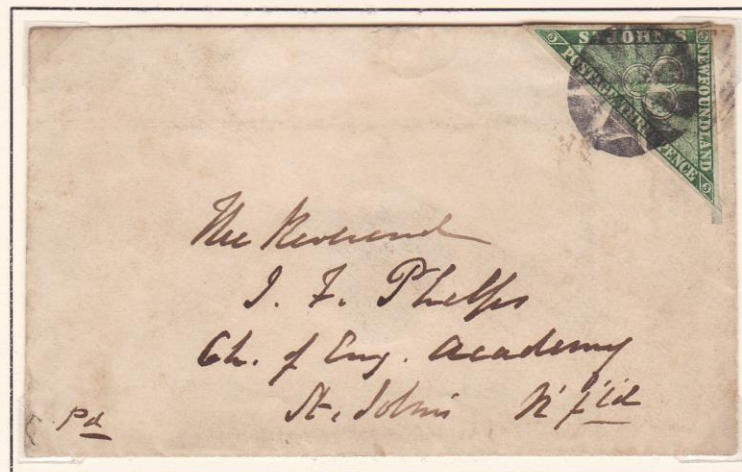 ST. JOHN'S
NEWFOUNDLAND
POSTAGE THREE PENCE
3
3
3
The Reverend
J. F. Phelps
Ch. of Eng. Academy
St. John's N'f'ld
Pd